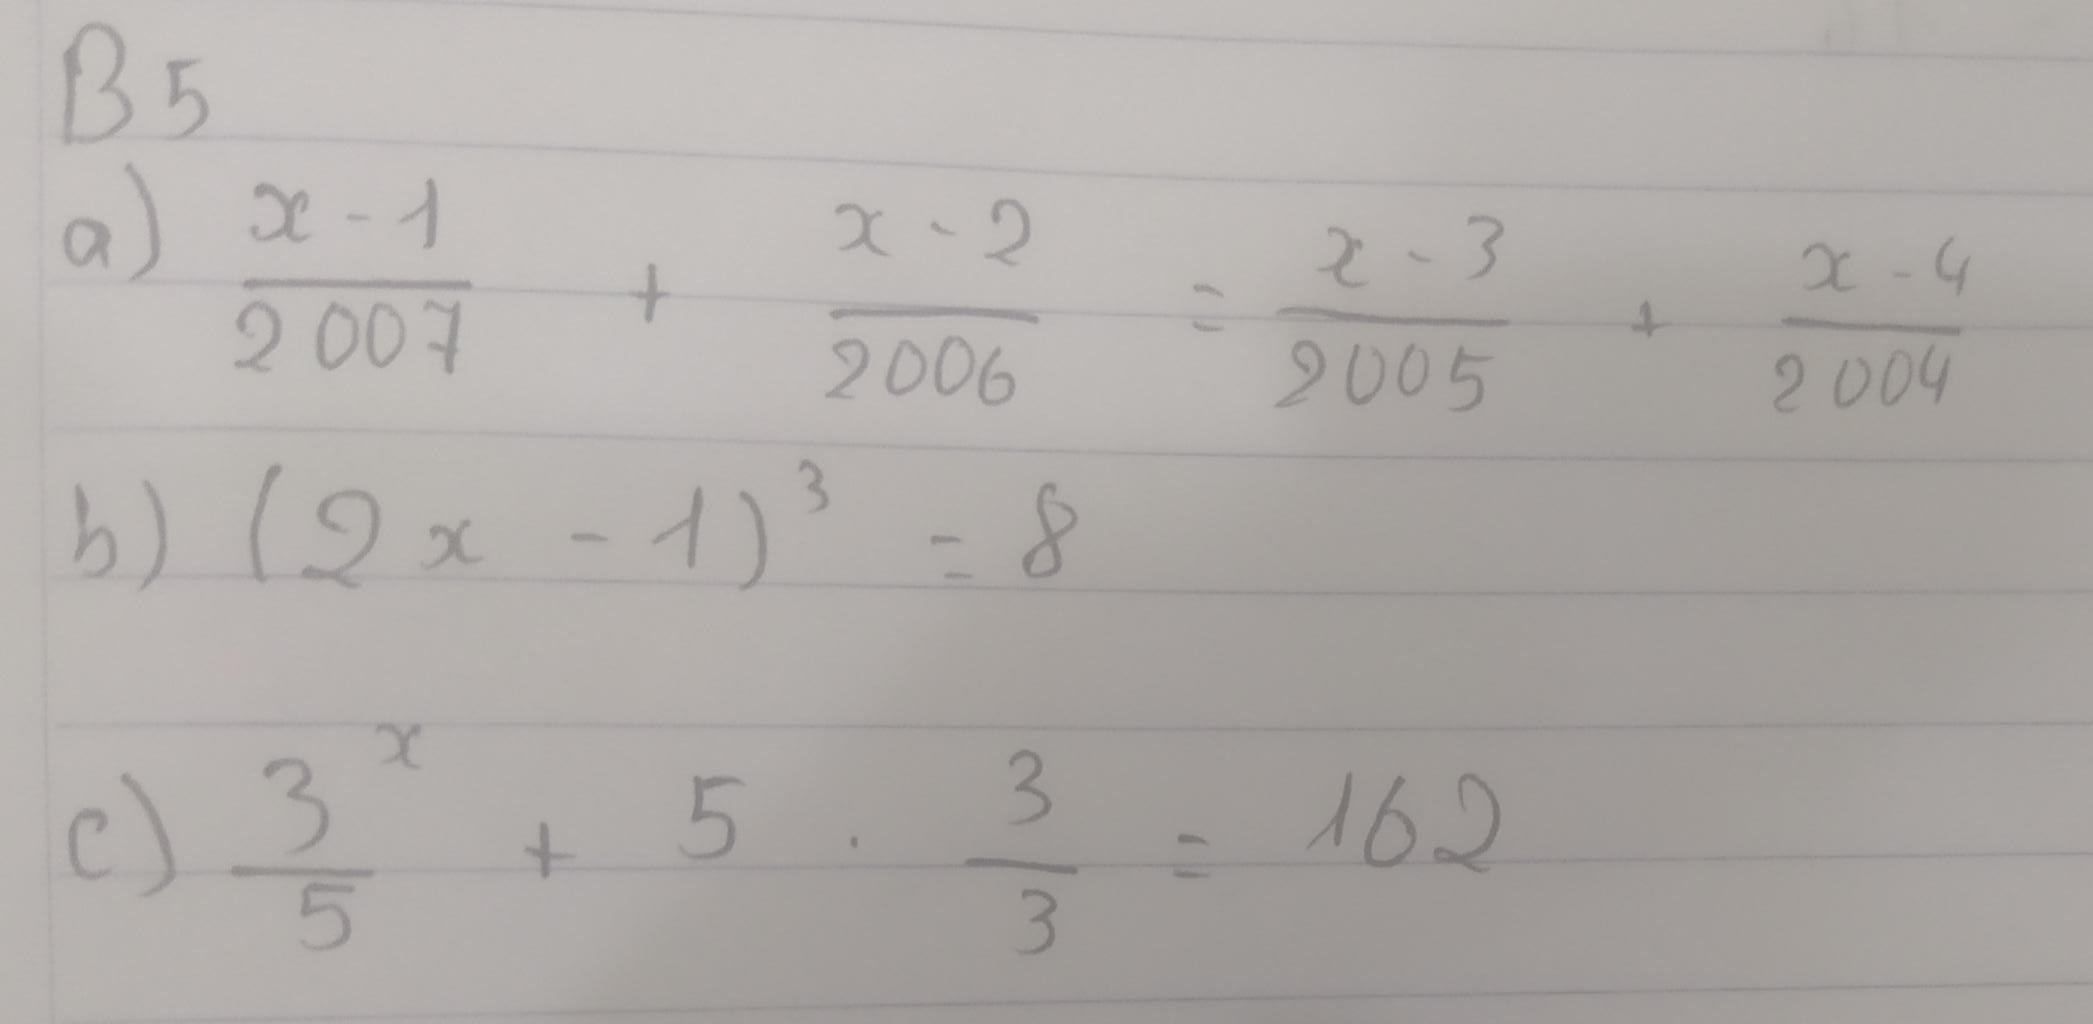 B5
a) x-1/2007 + x-2/2006 = x-3/2005 + x-4/2004
b) (2x - 1)³ = 8
c) 3ˣ/5 + 5 . 3/3 = 162